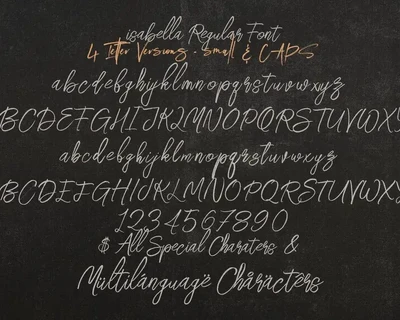 isabella Regular Font
4 letter Versions . small & CAPS
abcdefghijklmnopqrstuvwxyz
ABCDEFGHIJKLMNOPQRSTUVWXY
abcdefghijklmnopqrstuvwxyz
ABCDEFGHIJKLMNOPQRSTUVWXY
1234567890
$ All Special Charaters &
Múltilánguagë Chåráctérs